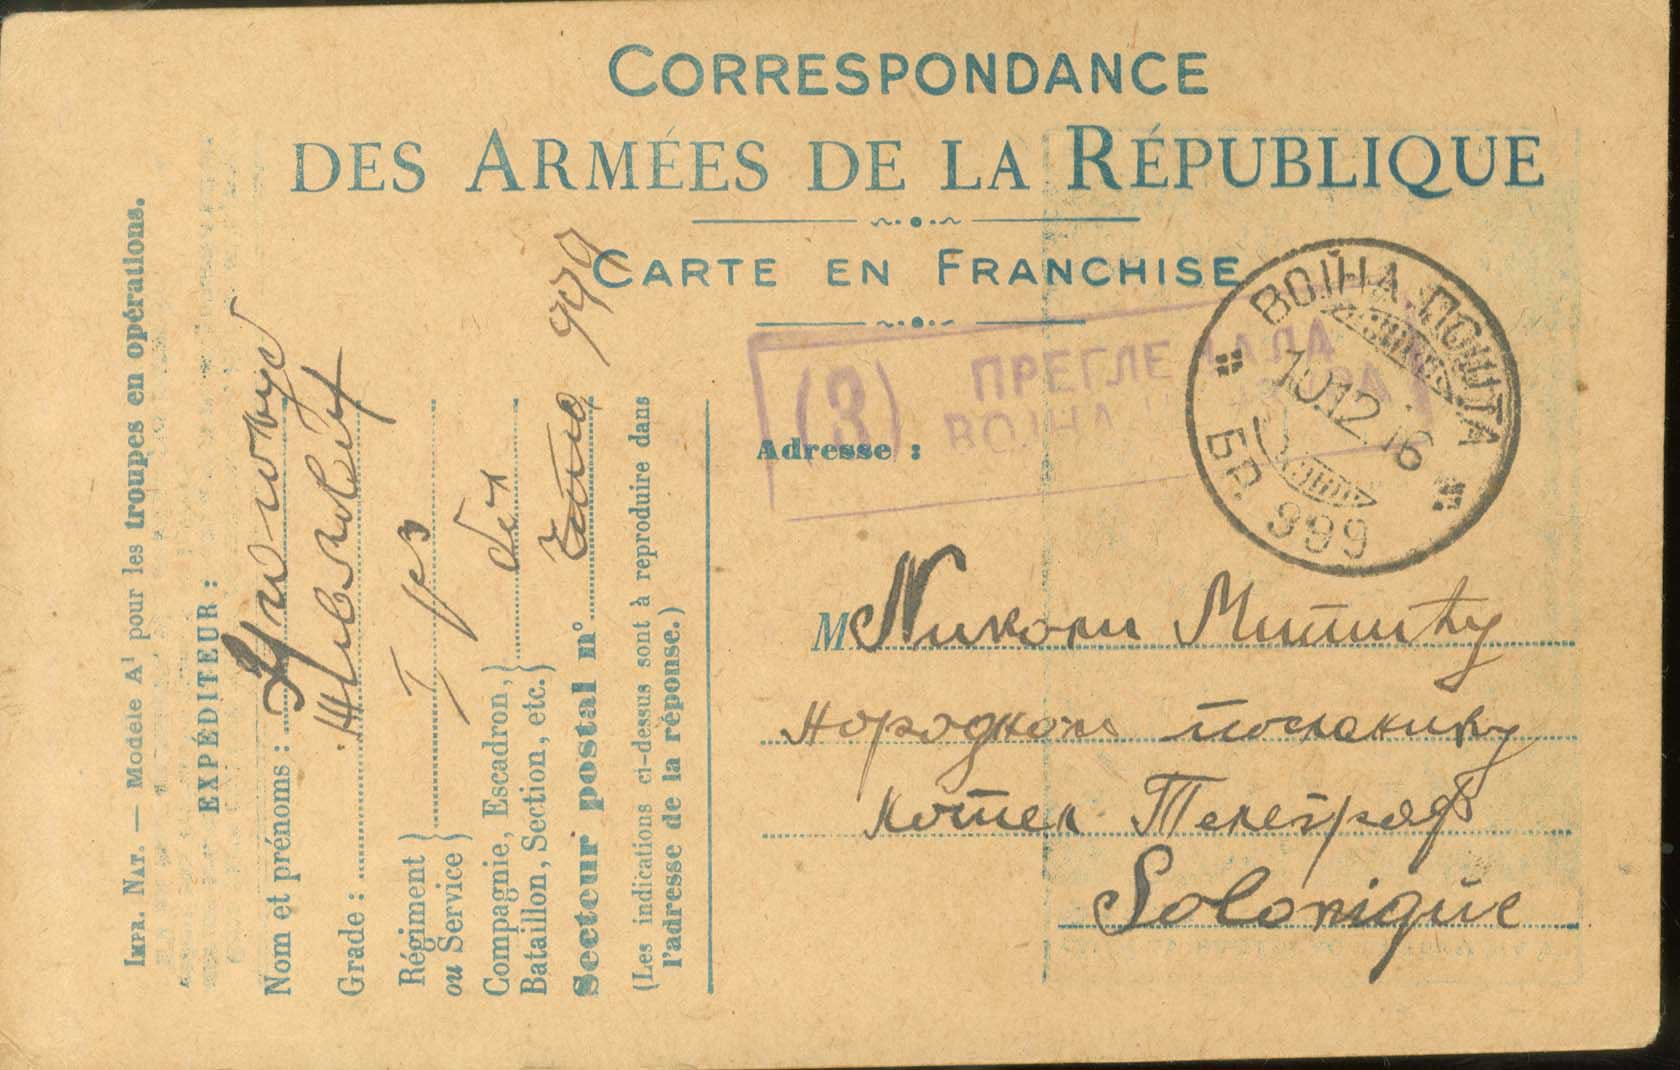 CORRESPONDANCE
DES ARMÉES DE LA RÉPUBLIQUE
CARTE EN FRANCHISE
IMPR. NAT. — Modèle A1 pour les troupes en opérations.
EXPÉDITEUR :
Nom et prénoms :
Grade :
Régiment
ou Service
Compagnie, Escadron,
Bataillon, Section, etc.
Secteur postal n°
(Les indications ci-dessus sont à reproduire dans
l'adresse de la réponse.)
(3) ПРЕГЛЕ
ВОЈНА
ВОЈНА ПОШТА
10.12.16
БР. 999
Adresse :
M Николи Митићу
народном посланику
хотел Телеграф
Salonique